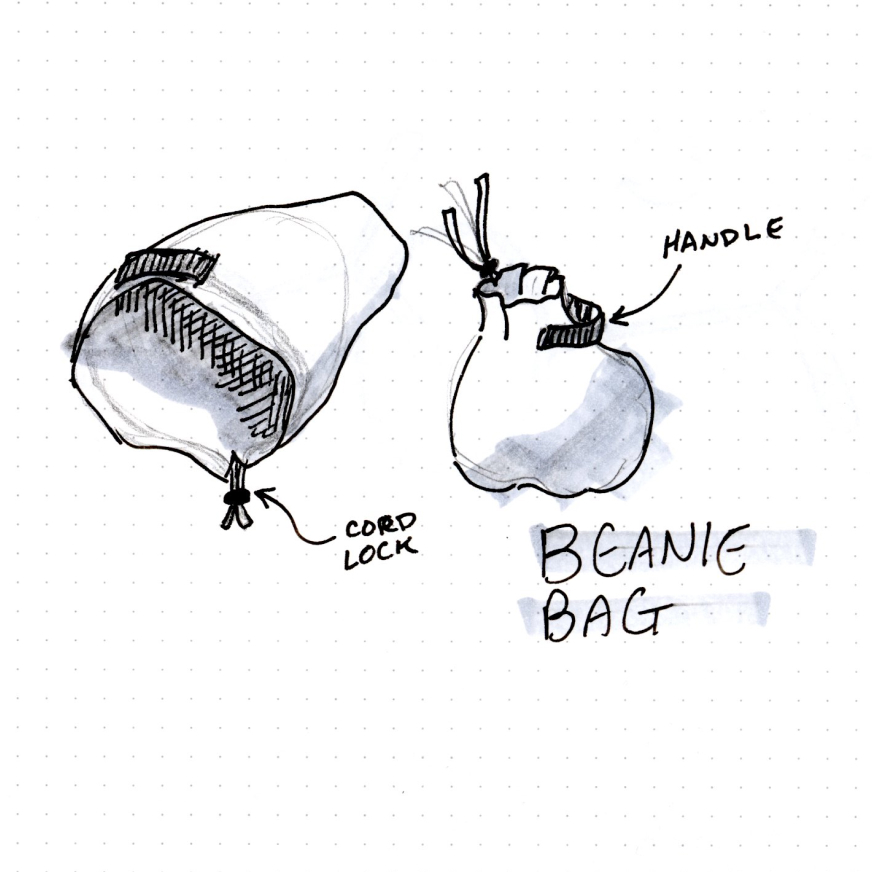 HANDLE
CORD
LOCK
BEANIE
BAG